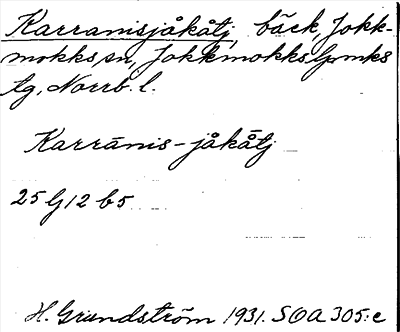 Karranisjåkåtj, bäck, Jokk-
mokks sn, Jokkmokks lpmks
tg, Norrb. l.
Karrānis-jåkåtj
25 G 12 b 5
H. Grundström 1931. SOA 305:c